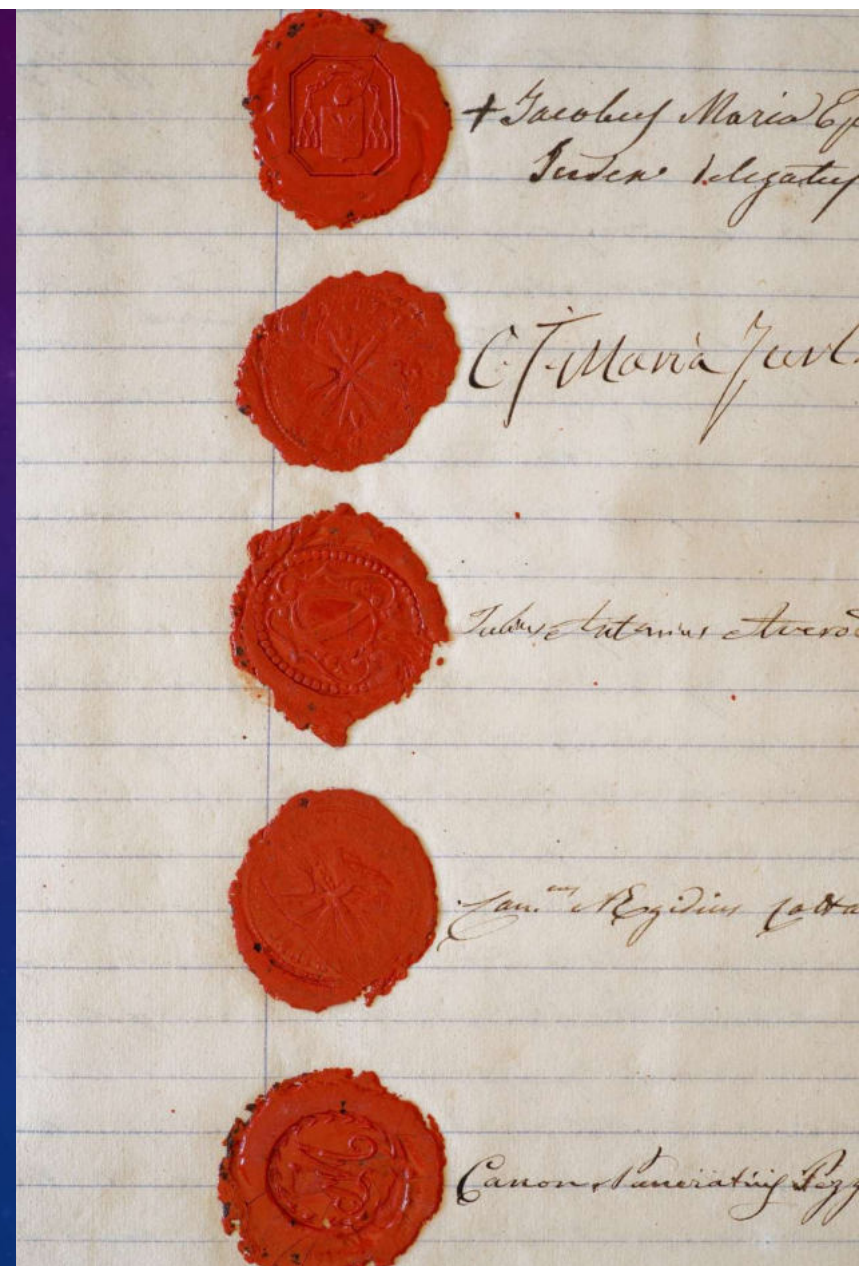 + Jacobus Maria Ep
Judex delegatus
C. J. Maria
Julius Antonius
Can.cus Aegidius Catta
Canon. Pancratius Pezz